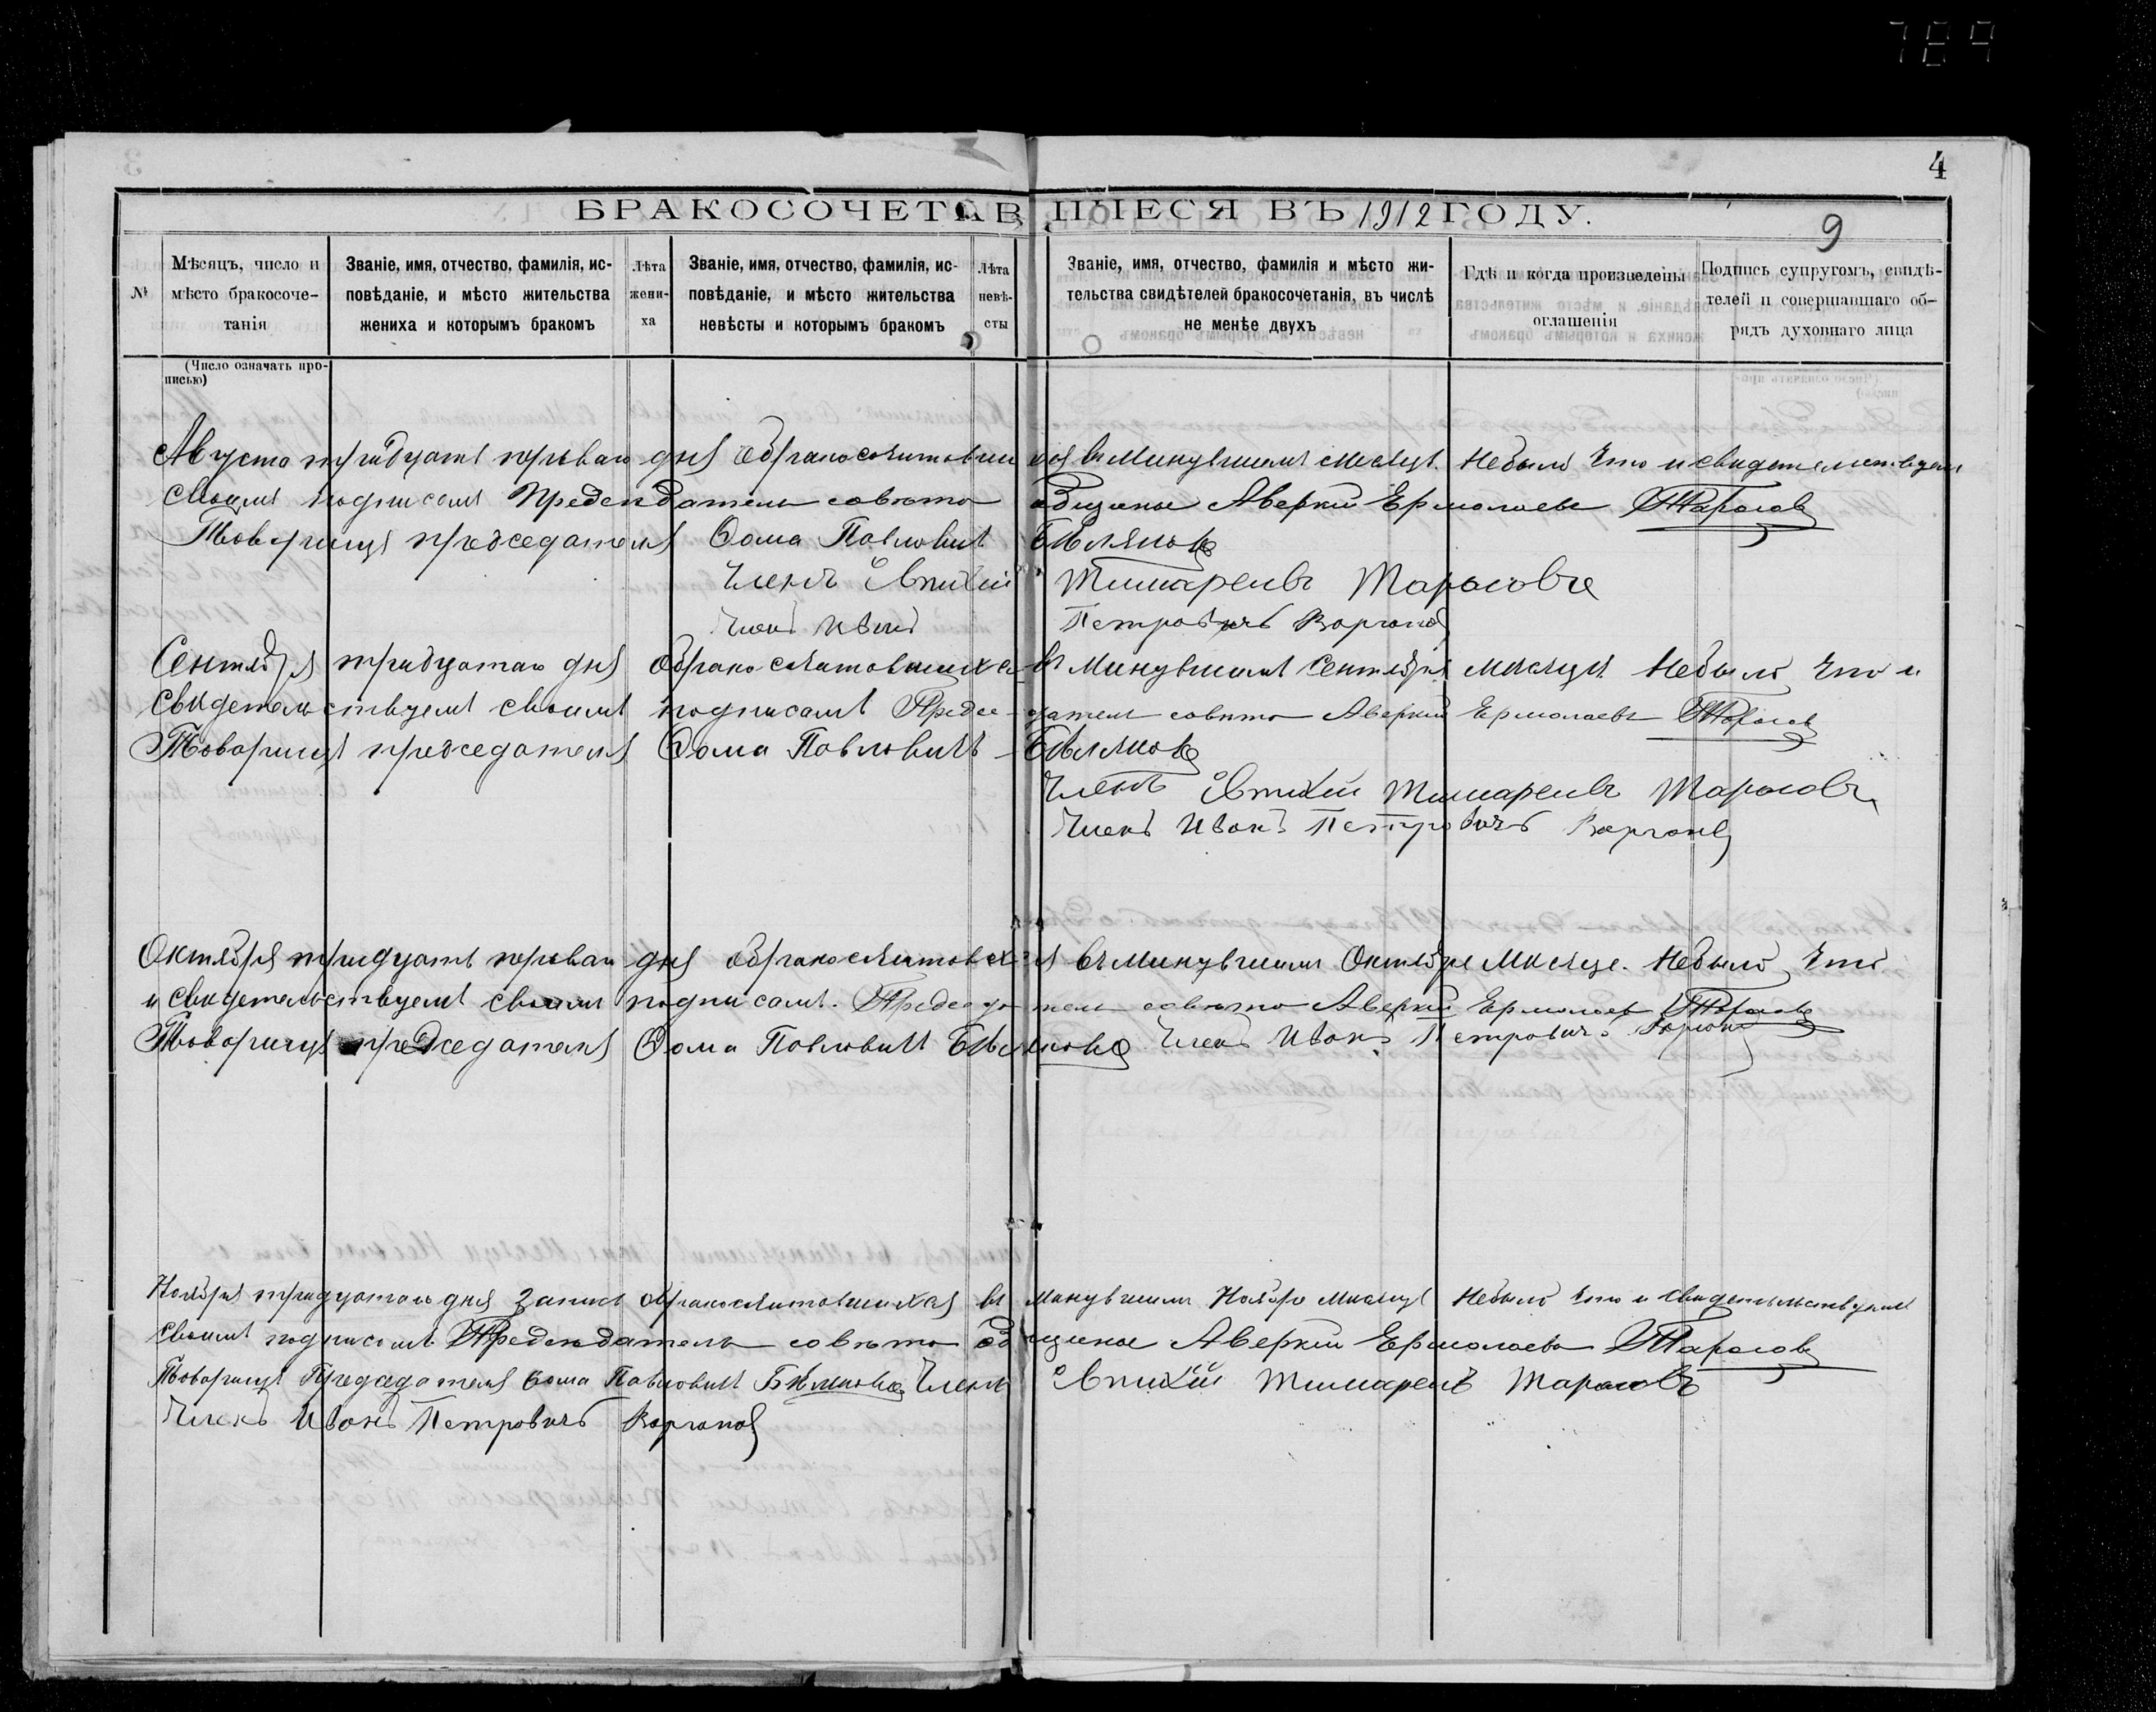 789
4
БРАКОСОЧЕТАВШІЕСЯ ВЪ 1912 ГОДУ.
9
№
Мѣсяцъ, число и мѣсто бракосочетанія
Званіе, имя, отчество, фамилія, исповѣданіе, и мѣсто жительства жениха и которымъ бракомъ
Лѣта жениха
Званіе, имя, отчество, фамилія, исповѣданіе, и мѣсто жительства невѣсты и которымъ бракомъ
Лѣта невѣсты
Званіе, имя, отчество, фамилія и мѣсто жительства свидѣтелей бракосочетанія, въ числѣ не менѣе двухъ
Гдѣ и когда произведены оглашенія
Подпись супруговъ, свидѣтелей и совершавшаго обрядъ духовнаго лица
(Число означать прописью)
Августа тридцать перваго дня обракосочитовшихся въ минувшемъ месяце небыло что и свидетелствуем
своими подписами Председатель совѣта общины Аверкий Ермолаевъ Тарасовъ
Товарищъ председателя Ѳома Павловичъ Бѣляковъ
Членъ Евтихий Тимаревъ Тарасовъ
Членъ Иванъ Петровичъ Ворганов
Сентября тридцатаго дня обракосочитовшихся въ минувшемъ Сентябре месяце небыло что и
свидетельствуемъ своими подписами Председатель совѣта Аверкий Ермолаевъ Тарасовъ
Товарищъ председателя Ѳома Павловичъ Бѣляковъ
Членъ Евтихий Тимаревъ Тарасовъ
Членъ Иванъ Петровичъ Ворганов
Октября тридцать перваго дня обракосочитовшихся въ минувшемъ Октябре месяце. небыло что
и свидетельствуемъ своими подписами. Председатель совѣта Аверкий Ермолаев Тарасовъ
Товарищъ председателя Ѳома Павловичъ Бѣляковъ Членъ Иванъ Петровичъ Ворганов
Ноября тридцатаго дня запись обракосочитовшихся въ минувшемъ Ноябре месяце небыло что и свидетельствуемъ
своими подписами Председатель совѣта общины Аверкий Ермолаевъ Тарасовъ
Товарищъ Председателя Ѳома Павловичъ Бѣляковъ Членъ Евтихий Тимаревъ Тарасовъ
Членъ Иванъ Петровичъ Ворганов